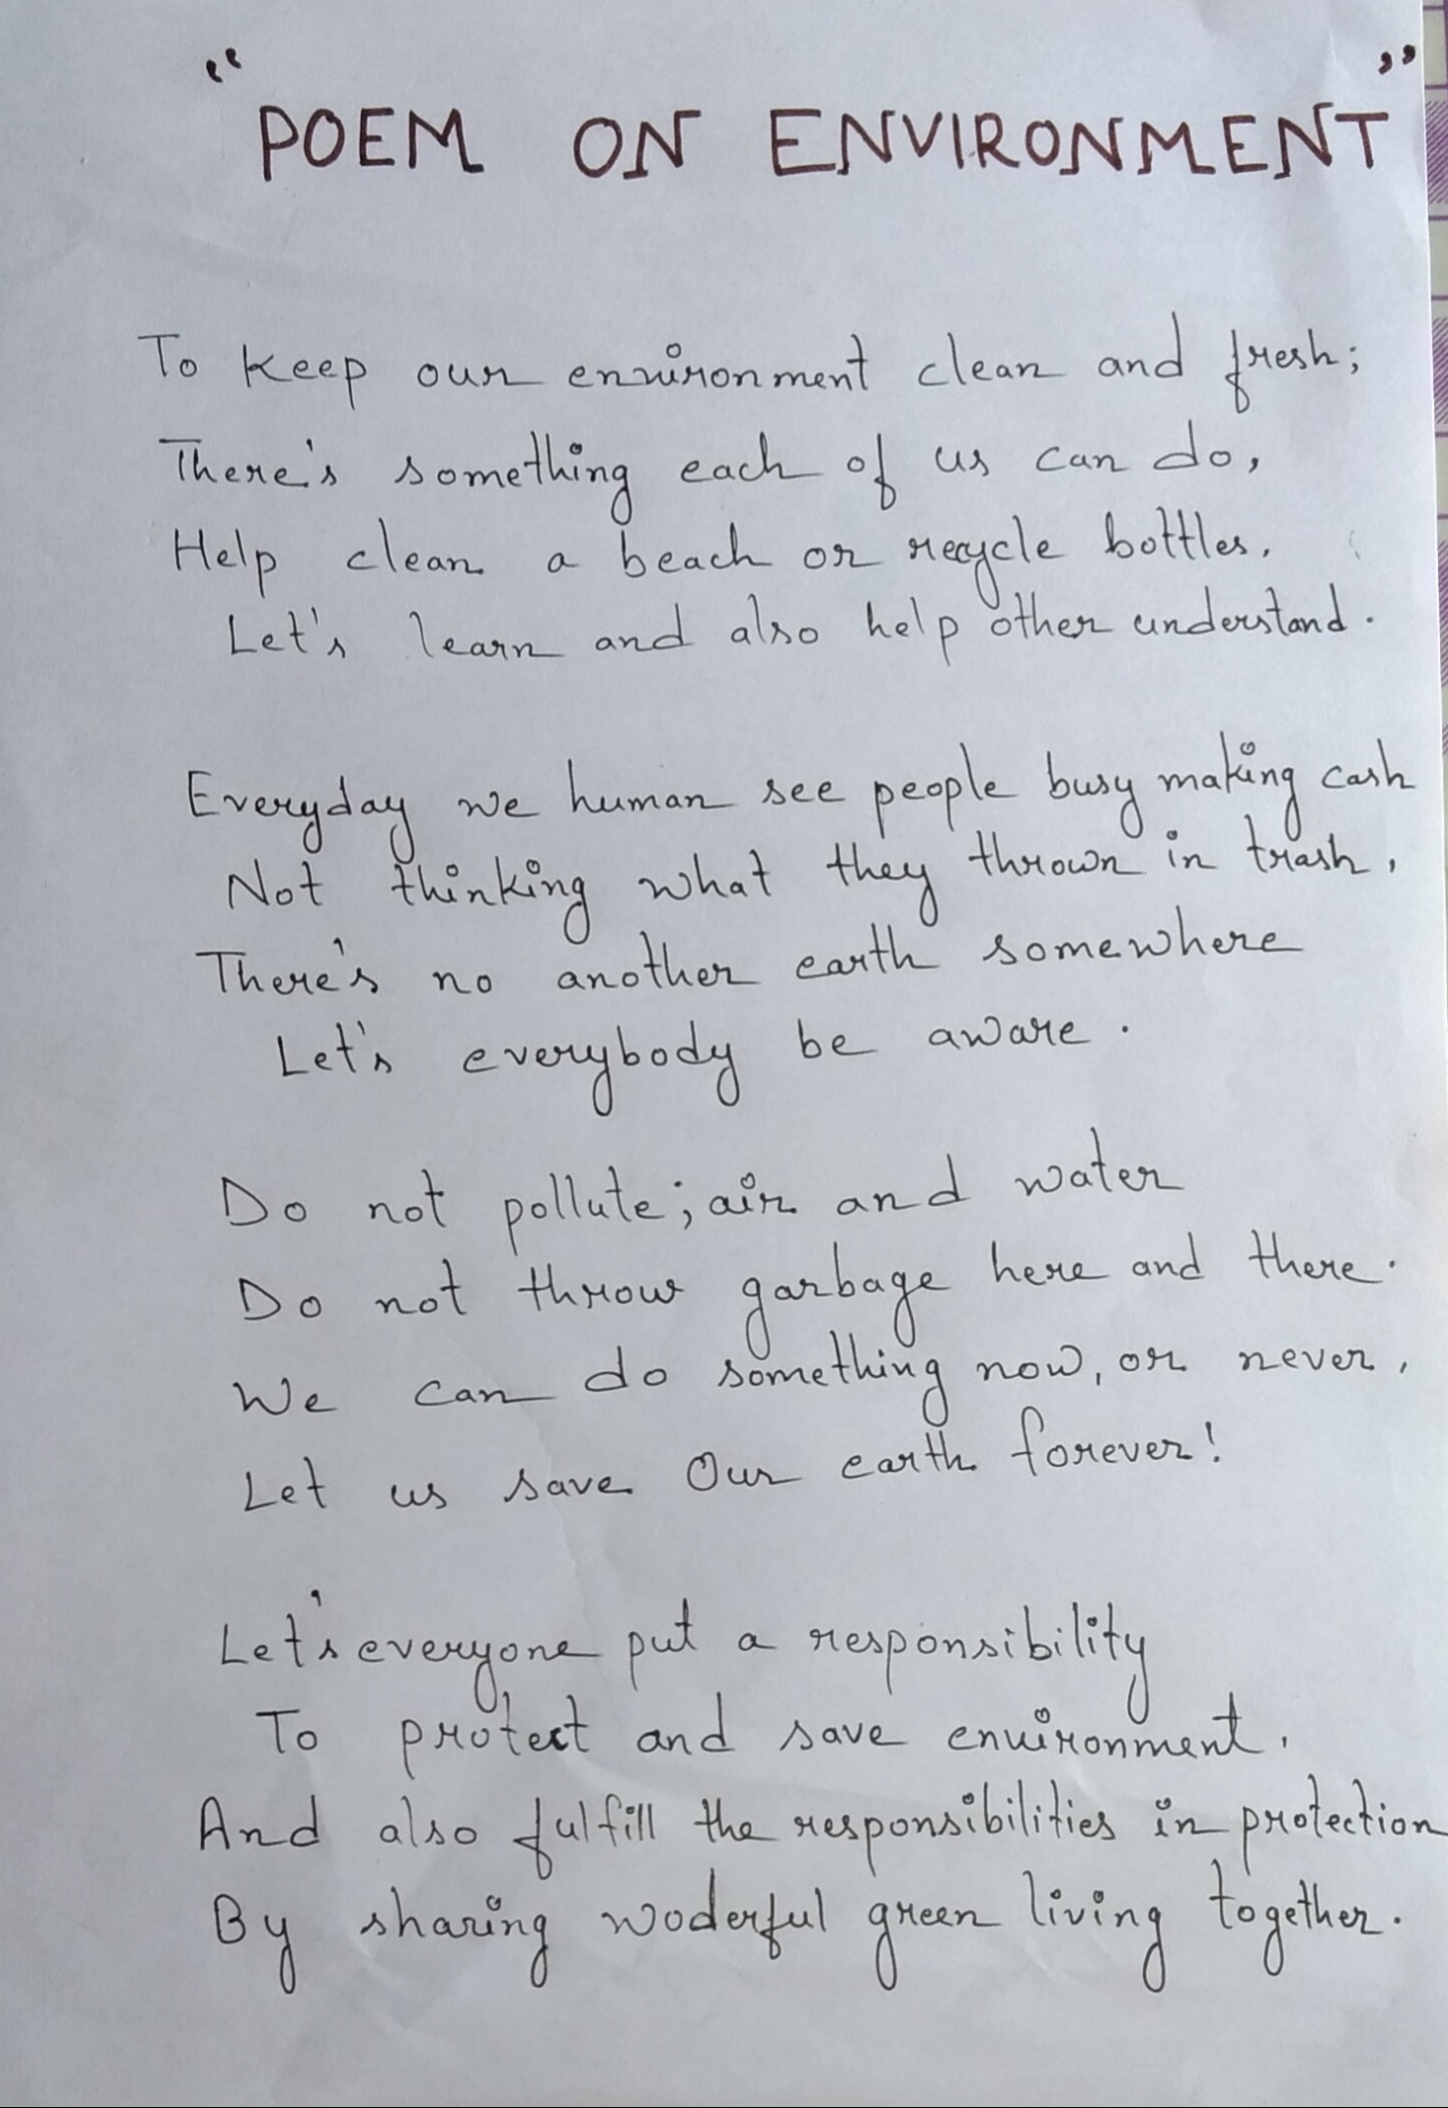 "POEM ON ENVIRONMENT"
To keep our environment clean and fresh;
There's something each of us can do,
Help clean a beach or recycle bottles.
Let's learn and also help other understand.
Everyday we human see people busy making cash
Not thinking what they thrown in trash,
There's no another earth somewhere
Let's everybody be aware.
Do not pollute; air and water
Do not throw garbage here and there.
We can do something now, or never,
Let us save Our earth forever!
Let's everyone put a responsibility
To protect and save environment,
And also fulfill the responsibilities in protection
By sharing woderful green living together.